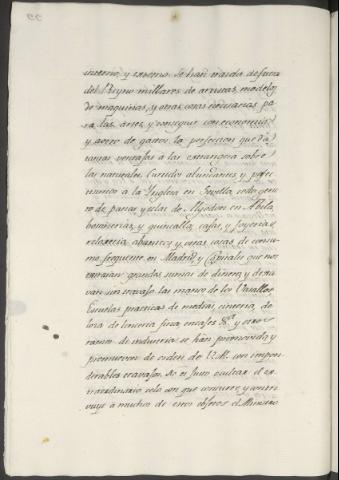 interno, y externo. Se han traido de fuera
del Reyno millares de artistas, modelos
de maquinas, y otras cosas necesarias pa-
ra las artes, y conseguir con economia
y ahorro de gastos la perfeccion que da
tantas ventajas a las extrangeras sobre
las naturales. Curtidos abundantes y
a la Ynglesa en Sevilla, todo gene-
ro de panas, y telas de Algodon en Abila,
botonerias, y quincalla, cajas, y joyeria,
reloxeria, abanicos, y otras cosas de consu-
mo frequente en Madrid, y Capitales que nos
extraian grandes sumas de dinero, y deja-
van sin travajo las manos de los Vasallos.
Escuelas practicas de medias, cinteria, de
loza, de lenceria fina, encajes &ª y otros
ramos de industria se han promovido, y
promueven de orden de V.M. con impon-
derables travajos. No es justo ocultar el ex-
traordinario celo con que concurre, y contri-
vuye á muchos de estos objetos el Ministro